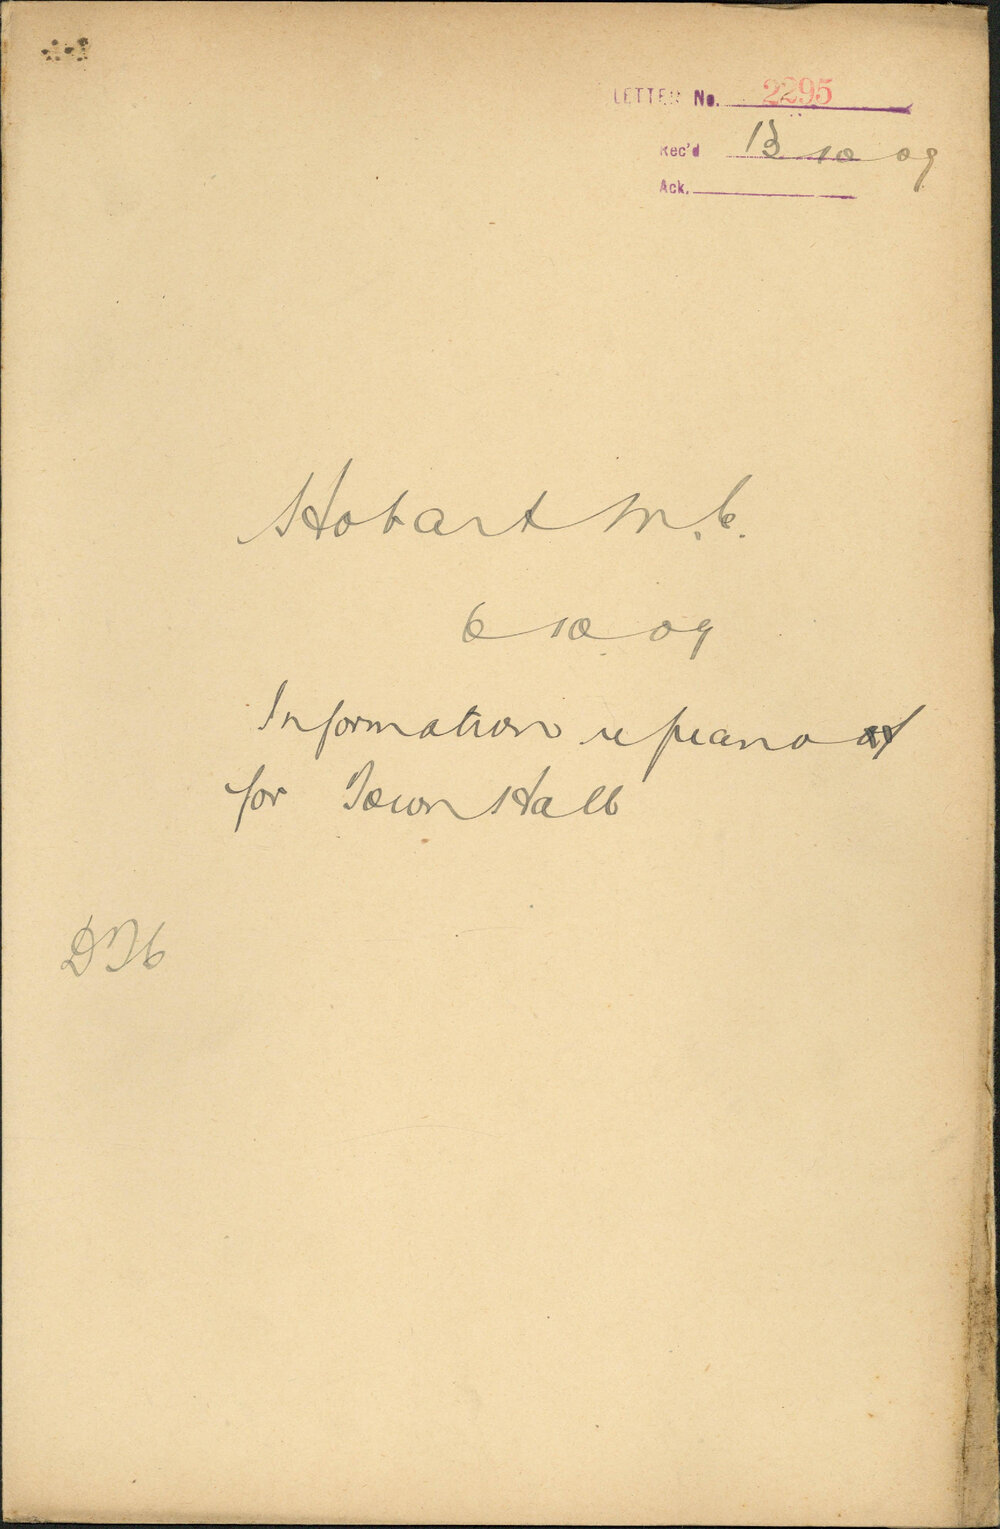 LETTER No. 2295
Rec'd 13 10 09
Ack.
Hobart M.C.
6 10 09
Information re piano
for Town Hall